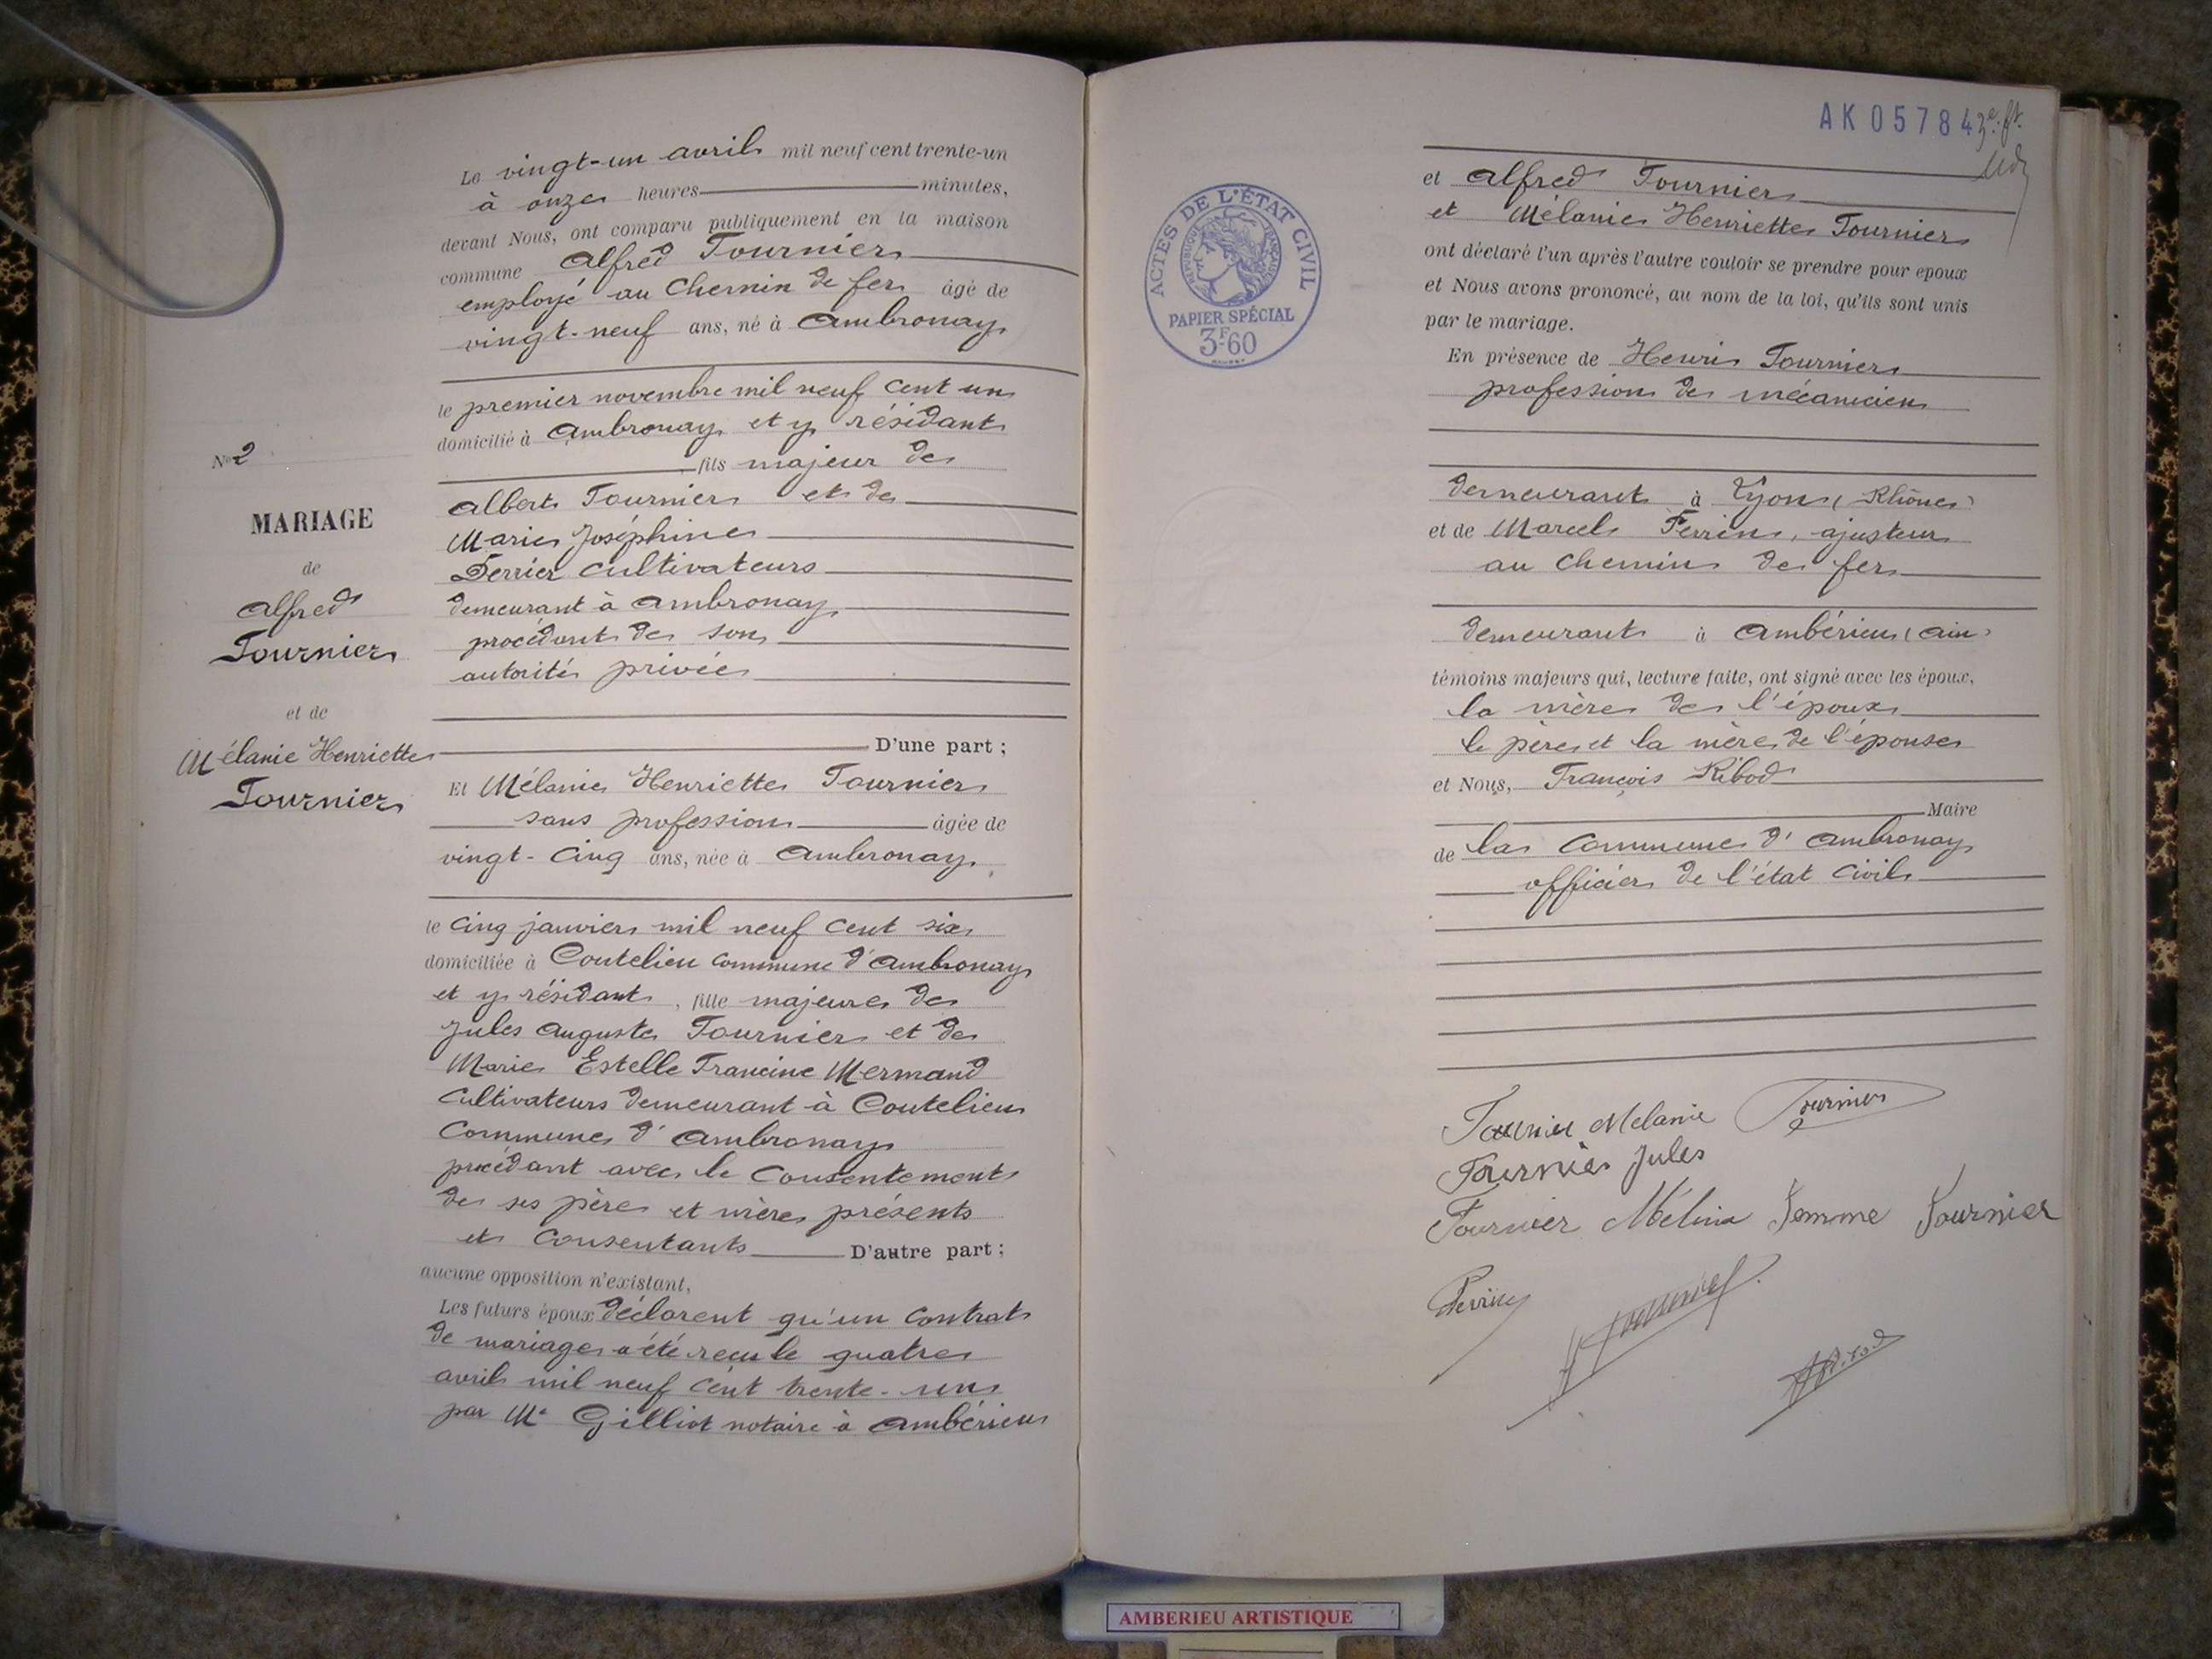 Le vingt-un avril mil neuf cent trente-un
à onze heures minutes,
devant Nous, ont comparu publiquement en la maison
commune Alfred Tournier
employé au Chemin de fer âgé de
vingt-neuf ans, né à Ambronay
le premier novembre mil neuf cent un
domicilié à Ambronay et y résidant
fils majeur de
Albert Tournier et de
Marie Joséphine
Perrier cultivateurs
demeurant à Ambronay
procédant de son
autorité privée
D'une part ;
Nº 2
MARIAGE
de
Alfred
Tournier
et de
Mélanie Henriette
Tournier
Et Mélanie Henriette Tournier
sans profession âgée de
vingt-cinq ans, née à Ambronay
le cinq janvier mil neuf cent six
domiciliée à Coutelieu commune d'Ambronay
et y résidant, fille majeure de
Jules Auguste Tournier et de
Marie Estelle Francine Mermand
cultivateurs demeurant à Coutelieu
Commune d'Ambronay
procédant avec le consentement
de ses père et mère présents
et consentants D'autre part ;
aucune opposition n'existant,
Les futurs époux déclarent qu'un contrat
de mariage a été reçu le quatre
avril mil neuf cent trente-un
par Me Gilliot notaire à Ambérieu
AK 05784
3e ft.
ACTES DE L'ÉTAT CIVIL
RÉPUBLIQUE FRANÇAISE
PAPIER SPÉCIAL
3F60
et Alfred Tournier
et Mélanie Henriette Tournier
ont déclaré l'un après l'autre vouloir se prendre pour époux
et Nous avons prononcé, au nom de la loi, qu'ils sont unis
par le mariage.
En présence de Henri Tournier
profession de mécanicien
demeurant à Lyon (Rhône)
et de Marcel Perrin, ajusteur
au Chemin de fer
demeurant à Ambérieu (Ain)
témoins majeurs qui, lecture faite, ont signé avec les époux,
la mère de l'époux
le père et la mère de l'épouse
et Nous, François Ribod
Maire
de la Commune d'Ambronay
officier de l'état civil
Tournier Melanie Tournier
Tournier Jules
Tournier Mélina Femme Tournier
Perrin
Ribod
AMBERIEU ARTISTIQUE